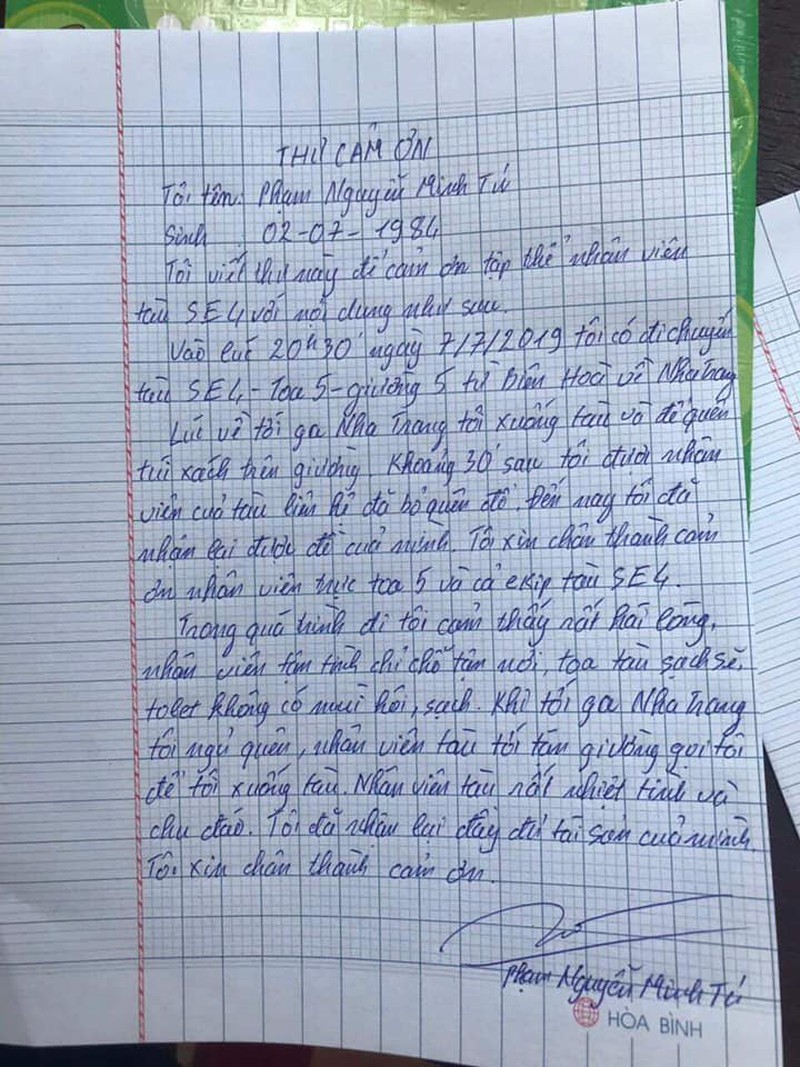 THƯ CẢM ƠN
Tôi tên: Phạm Nguyễn Minh Tú
Sinh : 02-07-1984
Tôi viết thư này để cảm ơn tập thể nhân viên
tàu SE4 với nội dung như sau.
Vào lúc 20h30' ngày 7/7/2019 tôi có đi chuyến
tàu SE4 - Toa 5 - giường 5 từ Biên Hoà về Nha Trang
Lúc về tới ga Nha Trang tôi xuống tàu và để quên
túi xách trên giường. Khoảng 30' sau tôi được nhân
viên của tàu liên hệ đã bỏ quên đồ. Đến nay tôi đã
nhận lại được đồ của mình. Tôi xin chân thành cảm
ơn nhân viên trực toa 5 và cả ekip tàu SE4.
Trong quá trình đi tôi cảm thấy rất hài lòng,
nhân viên tận tình chỉ chỗ tận nơi, toa tàu sạch sẽ,
tolet không có mùi hôi, sạch. Khi tới ga Nha Trang
tôi ngủ quên, nhân viên tàu tới tận giường gọi tôi
để tôi xuống tàu. Nhân viên tàu rất nhiệt tình và
chu đáo. Tôi đã nhận lại đầy đủ tài sản của mình.
Tôi xin chân thành cảm ơn.
Phạm Nguyễn Minh Tú
HÒA BÌNH